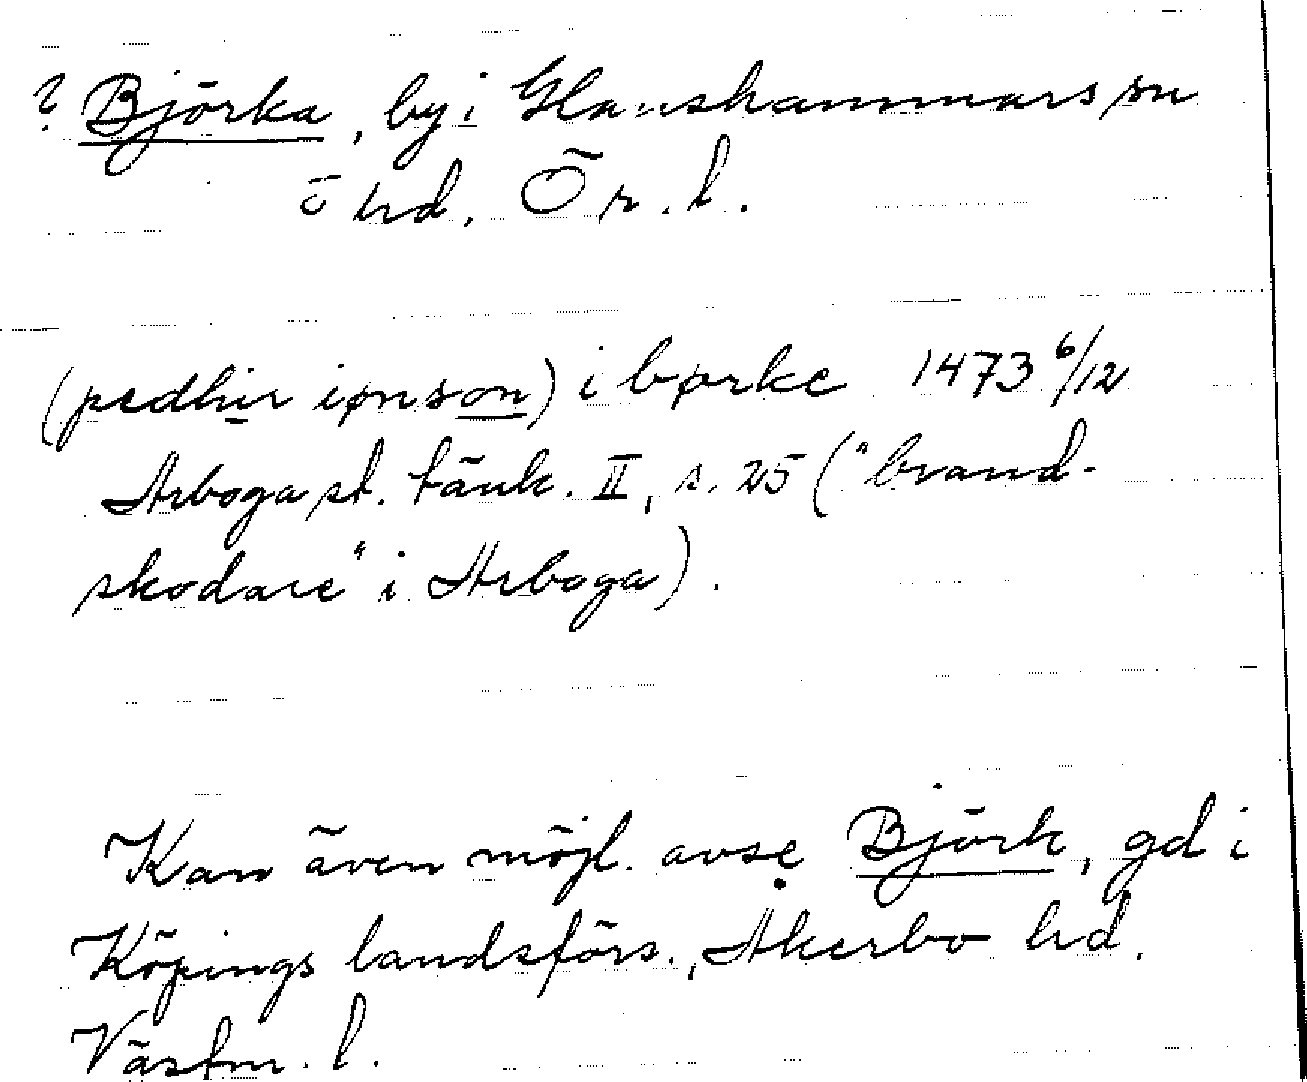 ? Björka, by i Glanshammars sn
ö hd. Ör. l.
(pedhir iønson) i børke 1473 6/12
Arboga st. tänk. II, s. 25 ("brand-
skodare" i Arboga).
Kan även möjl. avse Björk, gd i
Köpings landsförs., Åkerbo hd.
Västm. l.